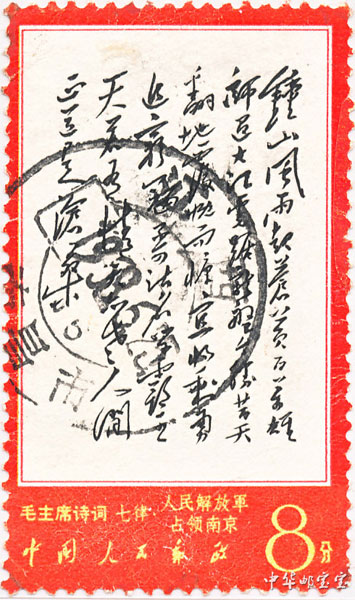 鍾山风雨起蒼黄百万雄
师过大江虎踞龙盘今胜昔天
翻地覆慨而慷宜将剩勇
追穷寇不可沽名学霸王
天若有情天亦老人间
正道是滄桑
毛主席诗词 七律·人民解放軍
占领南京
中国人民邮政
8分
中华邮宝宝